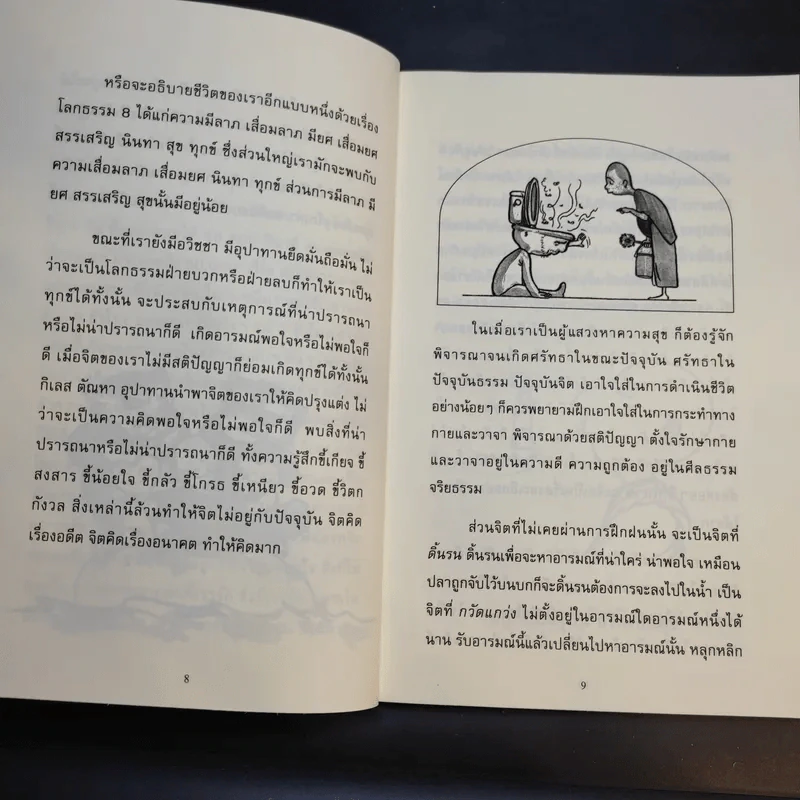 หรือจะอธิบายชีวิตของเราอีกแบบหนึ่งด้วยเรื่อง
โลกธรรม 8 ได้แก่ความมีลาภ เสื่อมลาภ มียศ เสื่อมยศ
สรรเสริญ นินทา สุข ทุกข์ ซึ่งส่วนใหญ่เรามักจะพบกับ
ความเสื่อมลาภ เสื่อมยศ นินทา ทุกข์ ส่วนการมีลาภ มี
ยศ สรรเสริญ สุขนั้นมีอยู่น้อย
ขณะที่เรายังมีอวิชชา มีอุปาทานยึดมั่นถือมั่น ไม่
ว่าจะเป็นโลกธรรมฝ่ายบวกหรือฝ่ายลบก็ทำให้เราเป็น
ทุกข์ได้ทั้งนั้น จะประสบกับเหตุการณ์ที่น่าปรารถนา
หรือไม่น่าปรารถนาก็ดี เกิดอารมณ์พอใจหรือไม่พอใจก็
ดี เมื่อจิตของเราไม่มีสติปัญญาก็ย่อมเกิดทุกข์ได้ทั้งนั้น
กิเลส ตัณหา อุปาทานนำพาจิตของเราให้คิดปรุงแต่ง ไม่
ว่าจะเป็นความคิดพอใจหรือไม่พอใจก็ดี พบสิ่งที่น่า
ปรารถนาหรือไม่น่าปรารถนาก็ดี ทั้งความรู้สึกขี้เกียจ ขี้
สงสาร ขี้น้อยใจ ขี้กลัว ขี้โกรธ ขี้เหนียว ขี้อวด ขี้วิตก
กังวล สิ่งเหล่านี้ล้วนทำให้จิตไม่อยู่กับปัจจุบัน จิตคิด
เรื่องอดีต จิตคิดเรื่องอนาคต ทำให้คิดมาก
8
ในเมื่อเราเป็นผู้แสวงหาความสุข ก็ต้องรู้จัก
พิจารณาจนเกิดศรัทธาในขณะปัจจุบัน ศรัทธาใน
ปัจจุบันธรรม ปัจจุบันจิต เอาใจใส่ในการดำเนินชีวิต
อย่างน้อยๆ ก็ควรพยายามฝึกเอาใจใส่ในการกระทำทาง
กายและวาจา พิจารณาด้วยสติปัญญา ตั้งใจรักษากาย
และวาจาอยู่ในความดี ความถูกต้อง อยู่ในศีลธรรม
จริยธรรม
ส่วนจิตที่ไม่เคยผ่านการฝึกฝนนั้น จะเป็นจิตที่
ดิ้นรน ดิ้นรนเพื่อจะหาอารมณ์ที่น่าใคร่ น่าพอใจ เหมือน
ปลาถูกจับไว้บนบกก็จะดิ้นรนต้องการจะลงไปในน้ำ เป็น
จิตที่ กวัดแกว่ง ไม่ตั้งอยู่ในอารมณ์ใดอารมณ์หนึ่งได้
นาน รับอารมณ์นี้แล้วเปลี่ยนไปหาอารมณ์นั้น หลุกหลิก
9